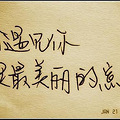 遇见你
是最美丽的意
JUN 21